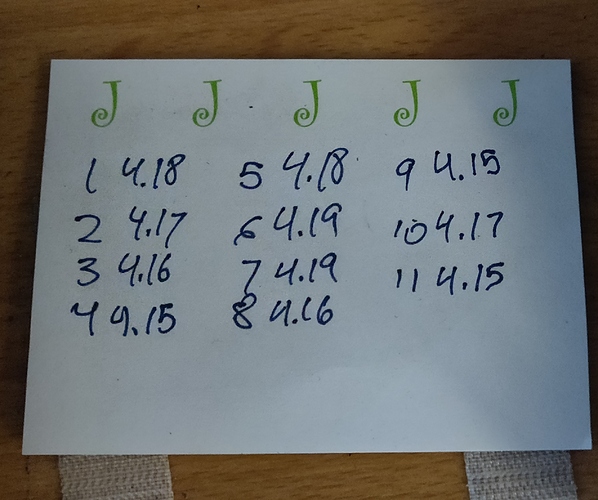 J J J J J
1 4.18 5 4.18 9 4.15
2 4.17 6 4.19 10 4.17
3 4.16 7 4.19 11 4.15
4 4.15 8 4.16